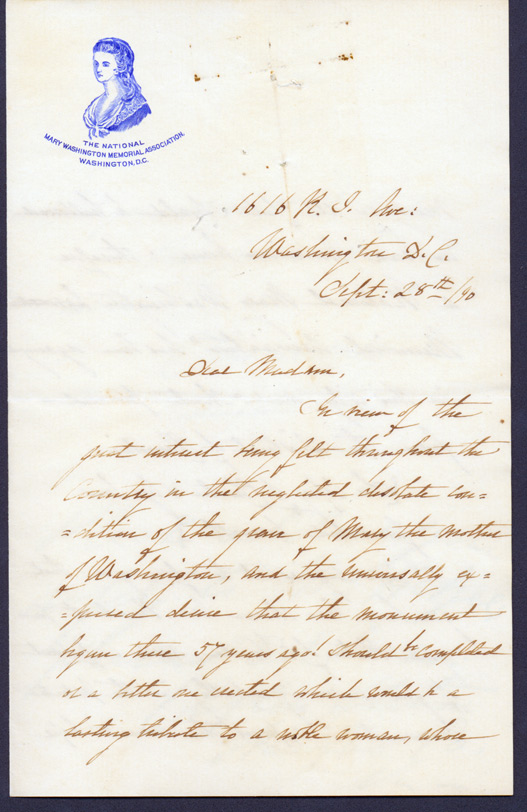 THE NATIONAL
MARY WASHINGTON MEMORIAL ASSOCIATION.
WASHINGTON, D.C.
1616 R. I. Ave:
Washington D.C.
Sept: 28th/90
Dear Madam,
In view of the
great interest being felt throughout the
Country in the neglected desolate con=
=dition of the grave of Mary the mother
of Washington, and the universally ex=
=pressed desire that the monument
begun there 57 years ago! should be completed
or a better one erected which would be a
lasting tribute to a noble woman, whose